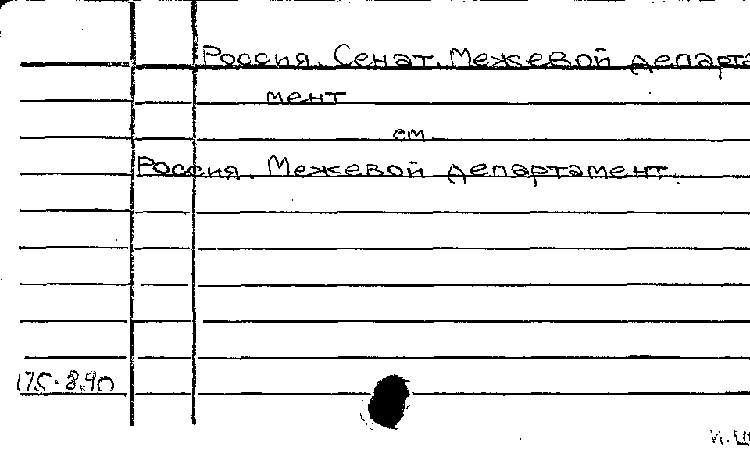 Россия. Сенат. Межевой департа
мент
см.
Россия. Межевой департамент.
175-8.90